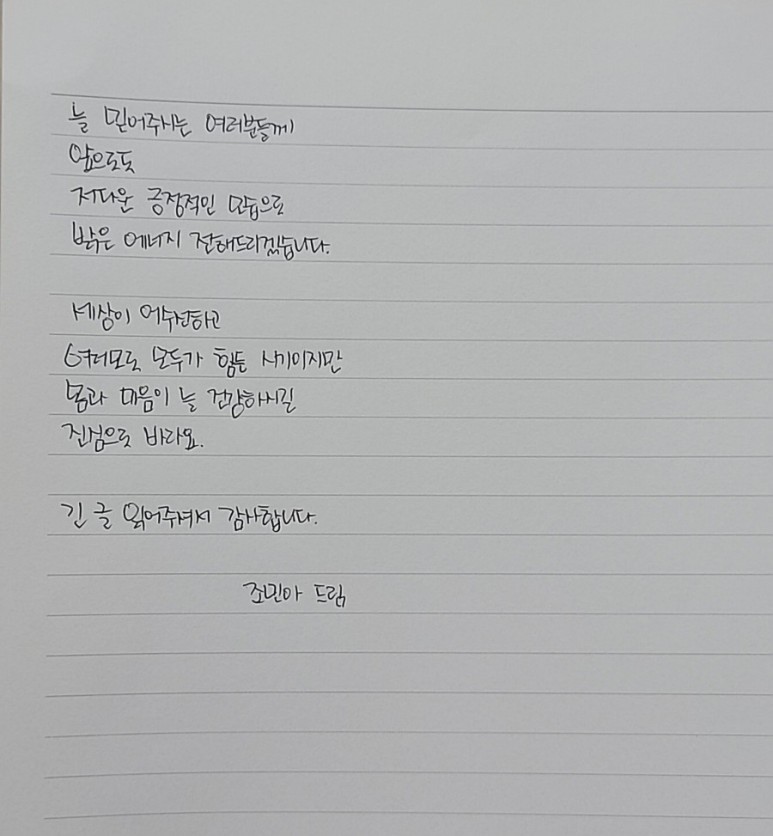 늘 믿어주시는 여러분들께
앞으로도
저다운 긍정적인 모습으로
밝은 에너지 전해드리겠습니다.
세상이 어수선하고
여러모로 모두가 힘든 시기이지만
몸과 마음이 늘 건강하시길
진심으로 바라요.
긴 글 읽어주셔서 감사합니다.
조민아 드림